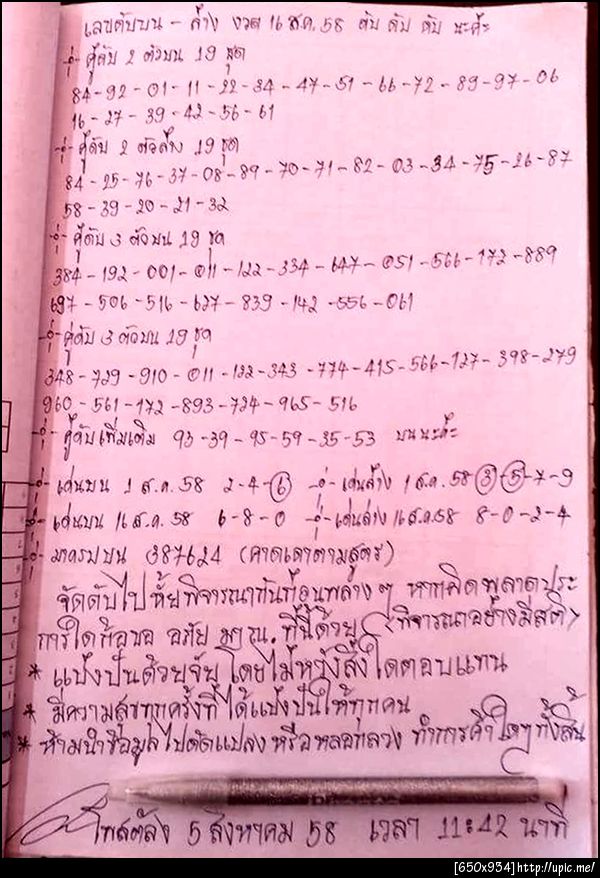 เลขดับบน - ล่าง งวด 16 ส.ค. 58 ดับ ดับ ดับ นะค่ะ
คู่ดับ 2 ตัวบน 19 ชุด
84-92-01-11-22-34-47-51-66-72-89-97-06
16-27-39-42-56-61
คู่ดับ 2 ตัวล่าง 19 ชุด
84-25-76-37-08-89-70-71-82-03-34-75-26-87
58-39-20-21-32
คู่ดับ 3 ตัวบน 19 ชุด
384-192-001-011-122-334-647-051-566-172-889
697-506-516-627-839-142-556-061
คู่ดับ 3 ตัวบน 19 ชุด
348-729-910-011-122-343-774-415-566-127-398-279
960-561-172-893-724-965-516
คู่ดับเพิ่มเติม 93-39-95-59-35-53 บนนะค่ะ
เด่นบน 1 ส.ค. 58 2-4-6 เด่นล่าง 1 ส.ค. 58 3-5-7-9
เด่นบน 16 ส.ค. 58 6-8-0 เด่นล่าง 16 ส.ค. 58 8-0-2-4
มาครบบน 0387624 (คาดเดาตามสูตร)
จัดดับไปให้พิจารณากันก่อนพลางๆ หากผิดพลาดประ
การใดก็ขอ อภัย มา ณ. ที่นี้ด้วย (พิจารณาอย่างมีสติ)
* แบ่งปันด้วยใจ โดยไม่หวังสิ่งใดตอบแทน
* มีความสุขทุกครั้งที่ได้แบ่งปันให้ทุกคน
* ห้ามนำข้อมูลไปดัดแปลง หรือหลอกลวง ทำการค้าใดๆทั้งสิ้น
โพสต์ลง 5 สิงหาคม 58 เวลา 11:42 นาที
[650x934]http://upic.me/